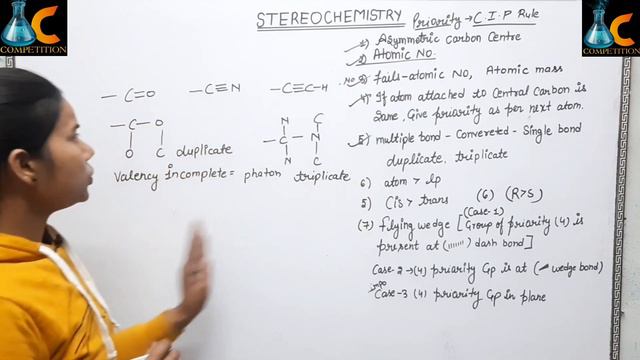 COMPETITION
STEREOCHEMISTRY Priority → C.I.P Rule
COMPETITION
1) Asymmetric carbon Centre
2) Atomic No.
3) Fails-atomic NO, Atomic mass
4) If atom attached to Central Carbon is
Same, Give priority as per next atom.
5) multiple bond - Converted - Single bond
duplicate, triplicate
6) atom > lp
5) Cis > trans (6) (R>S)
(Case-1)
(7) Flying wedge [Group of priority (4) is
present at (ııııııı) dash bond]
Case-2 → (4) priority Gp is at (wedge bond)
Case-3 (4) priority Gp in plane
—C=O —C≡N —C≡C-H
—C—O
O C duplicate
N C
—C—N
N C
Valency incomplete = photon triplicate